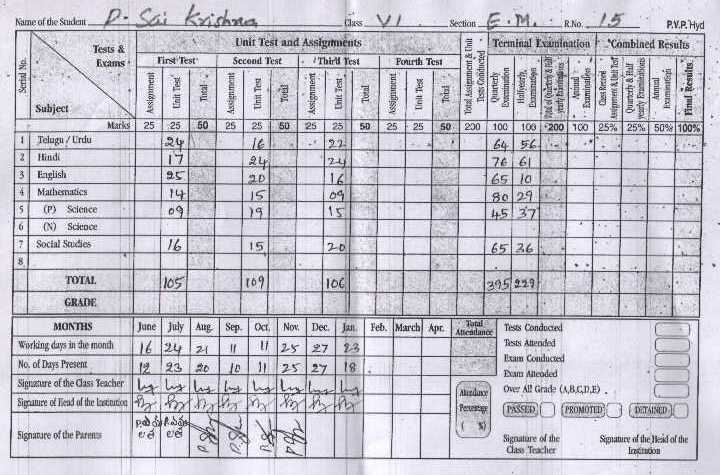 Name of the Student P. Sai Krishna Class VI Section E.M. R.No. 15 P.V.P. Hyd
Serial No. Tests & Exams Subject Unit Test and Assignments Total Assignment & Unit Tests Conducted Terminal Examination Combined Results
First Test Second Test Third Test Fourth Test
Assignment Unit Test Total Assignment Unit Test Total Assignment Unit Test Total Assignment Unit Test Total Quarterly Examination Halfyearly Examination Total of Quarterly & Half yearly Examinations Annual Examination Class Record Assignment & Unit Test Quarterly & Half yearly Examinations Annual Examination Final Results
Marks 25 25 50 25 25 50 25 25 50 25 25 50 200 100 100 200 100 25% 25% 50% 100%
1 Telugu / Urdu 24 16 22 64 56
2 Hindi 17 24 24 76 61
3 English 25 20 16 65 10
4 Mathematics 14 15 09 80 29
5 (P) Science 09 19 15 45 37
6 (N) Science
7 Social Studies 16 15 20 65 36
8
TOTAL 105 109 106 395 229
GRADE
MONTHS June July Aug. Sep. Oct. Nov. Dec. Jan. Feb. March Apr. Total Attendance
Working days in the month 16 24 21 11 11 25 27 23
No. of Days Present 12 23 20 10 11 25 27 18
Signature of the Class Teacher
Signature of Head of the Institution
Signature of the Parents
Attendance Percentage ( %)
Tests Conducted
Tests Attended
Exam Conducted
Exam Attended
Over All Grade (A,B,C,D,E)
PASSED PROMOTED DETAINED
Signature of the Class Teacher
Signature of the Head of the Institution